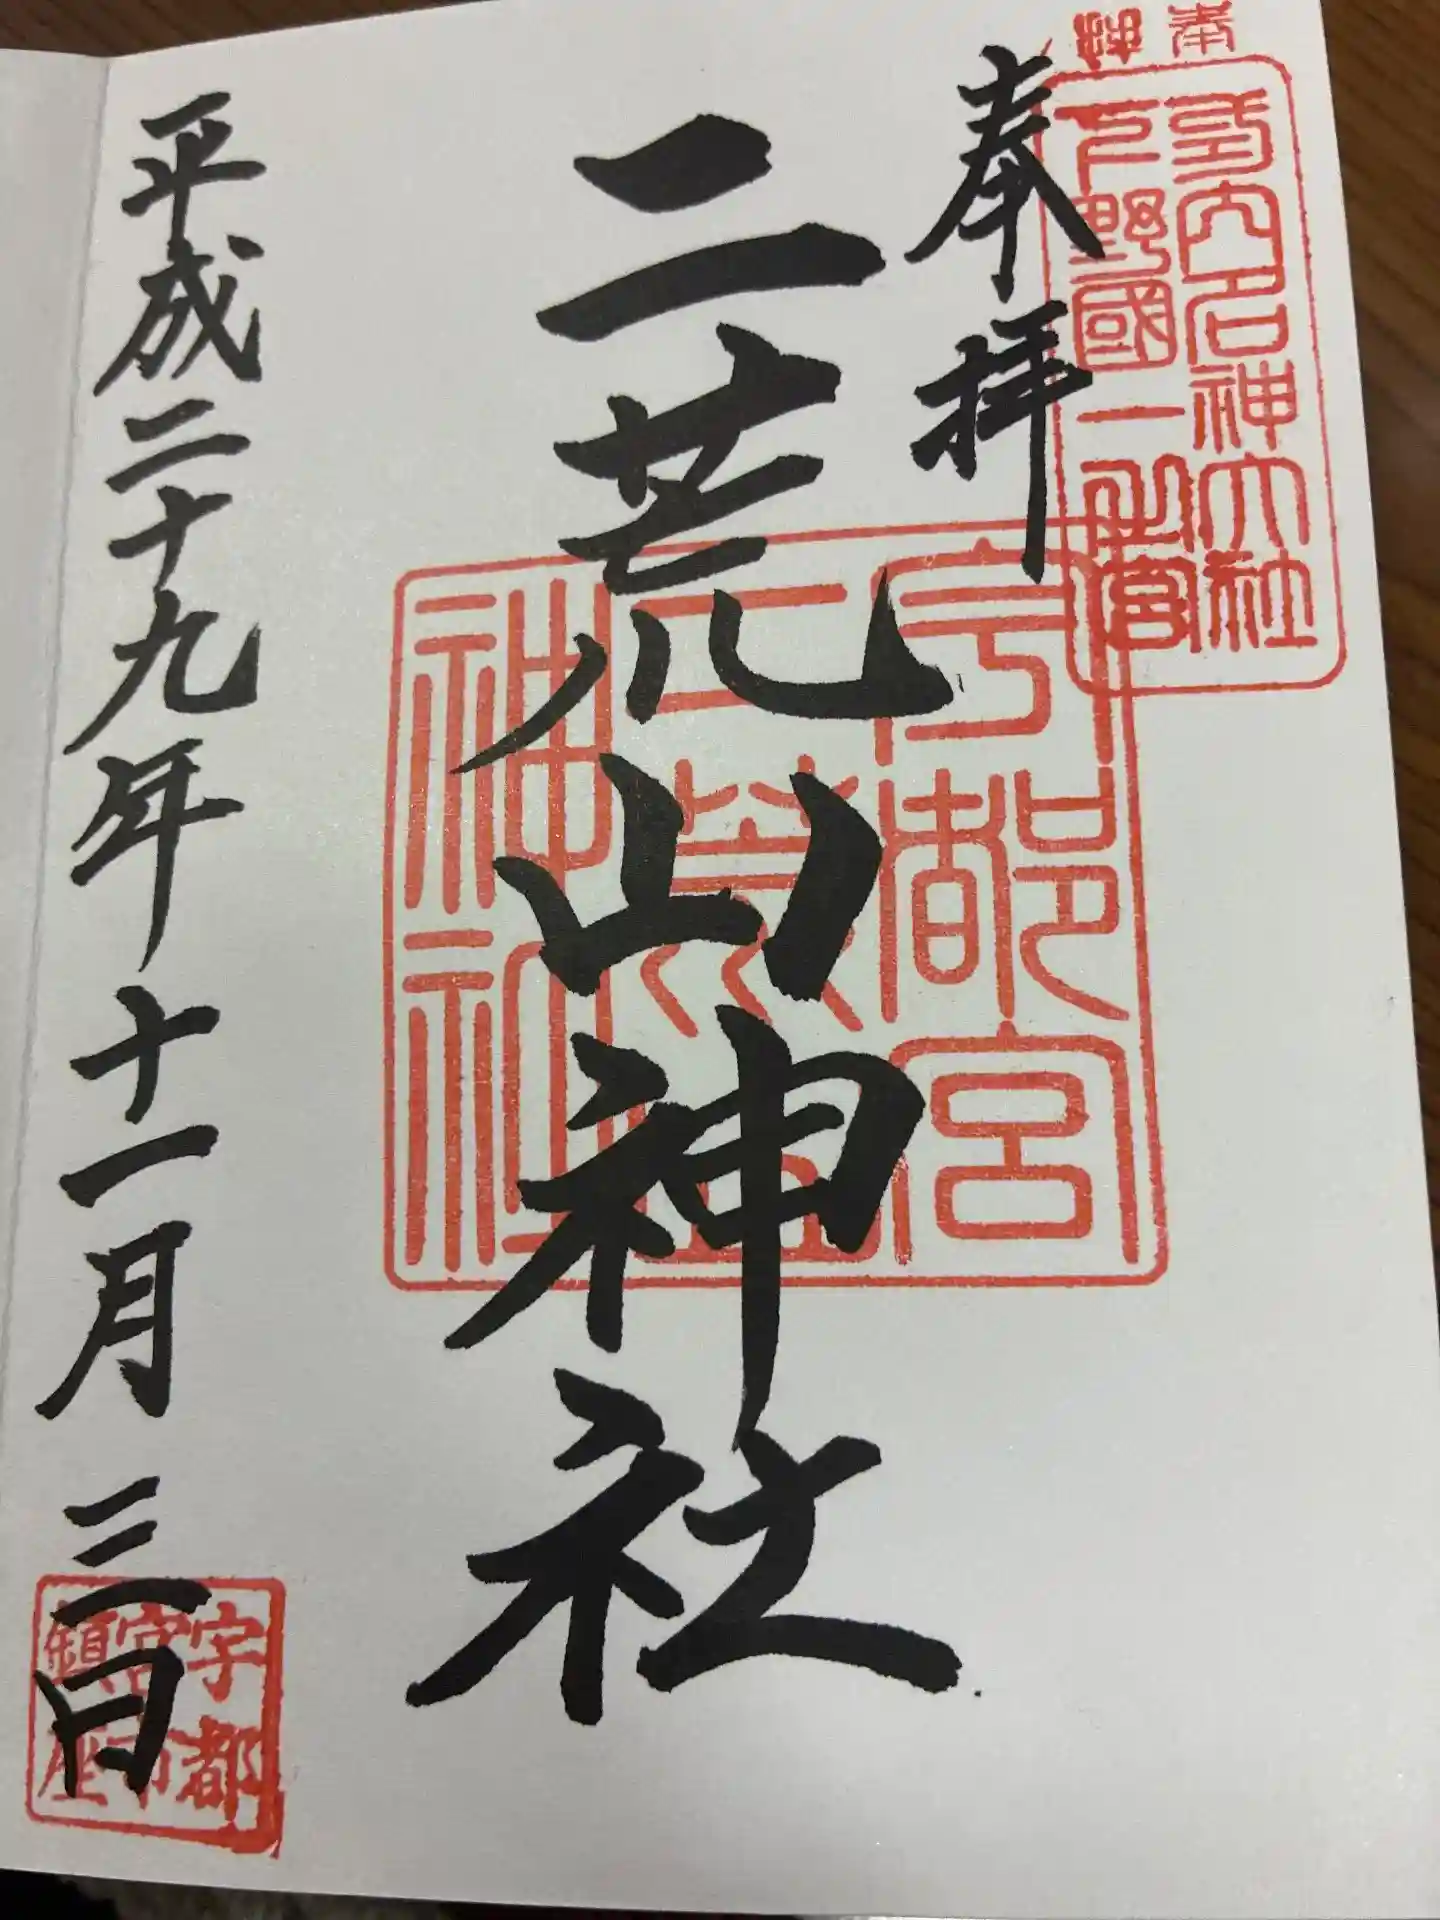 奉拝
式内名神大社
下野國一之宮
二荒山神社
宇都宮
二荒山
神社
平成二十九年十一月三日
宇都
宮市
鎮座